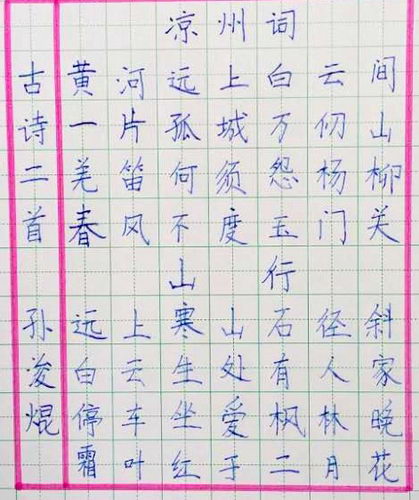 古诗二首
孙浚焜
凉州词
黄河远上白云间
一片孤城万仞山
羌笛何须怨杨柳
春风不度玉门关
山行
远上寒山石径斜
白云生处有人家
停车坐爱枫林晚
霜叶红于二月花